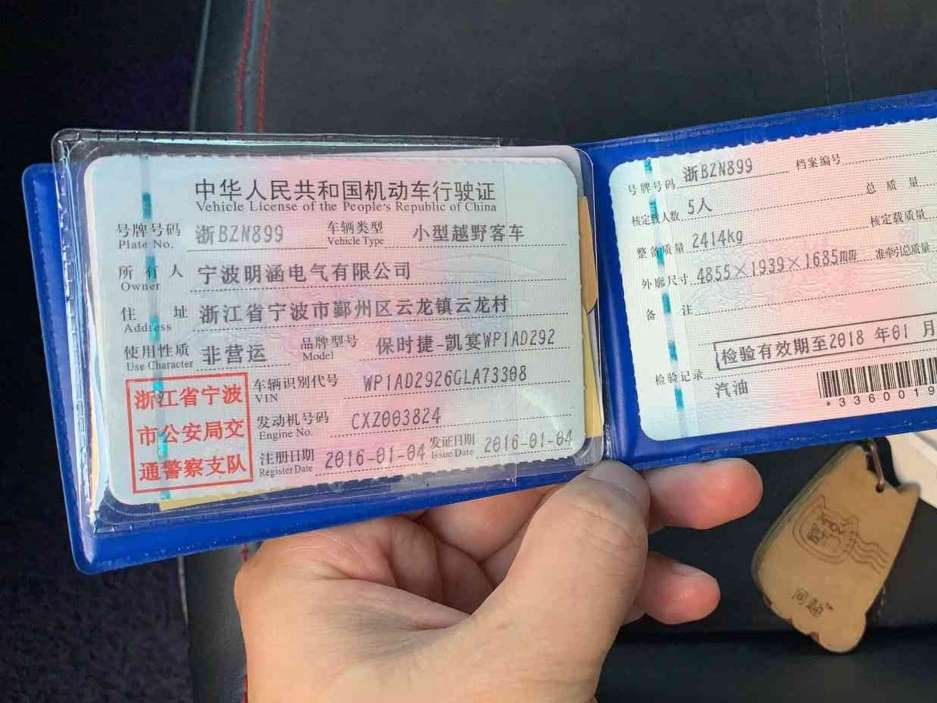 中华人民共和国机动车行驶证
Vehicle License of the People's Republic of China
号牌号码 浙BZN899 车辆类型 小型越野客车
Plate No. Vehicle Type
所有人 宁波明涵电气有限公司
Owner
住址 浙江省宁波市鄞州区云龙镇云龙村
Address
使用性质 非营运 品牌型号 保时捷-凯宴WP1AD292
Use Character Model
浙江省宁波
市公安局交
通警察支队
车辆识别代号 WP1AD2926GLA73308
VIN
发动机号码 CXZ003824
Engine No.
注册日期 2016-01-04 发证日期 2016-01-04
Register Date Issue Date
号牌号码 浙BZN899 档案编号
核定载人数 5人 总质量
整备质量 2414kg 核定载质量
外廓尺寸 4855×1939×1685mm 准牵引总质量
备注
检验有效期至2018 年01 月
检验记录
汽油
*3360019